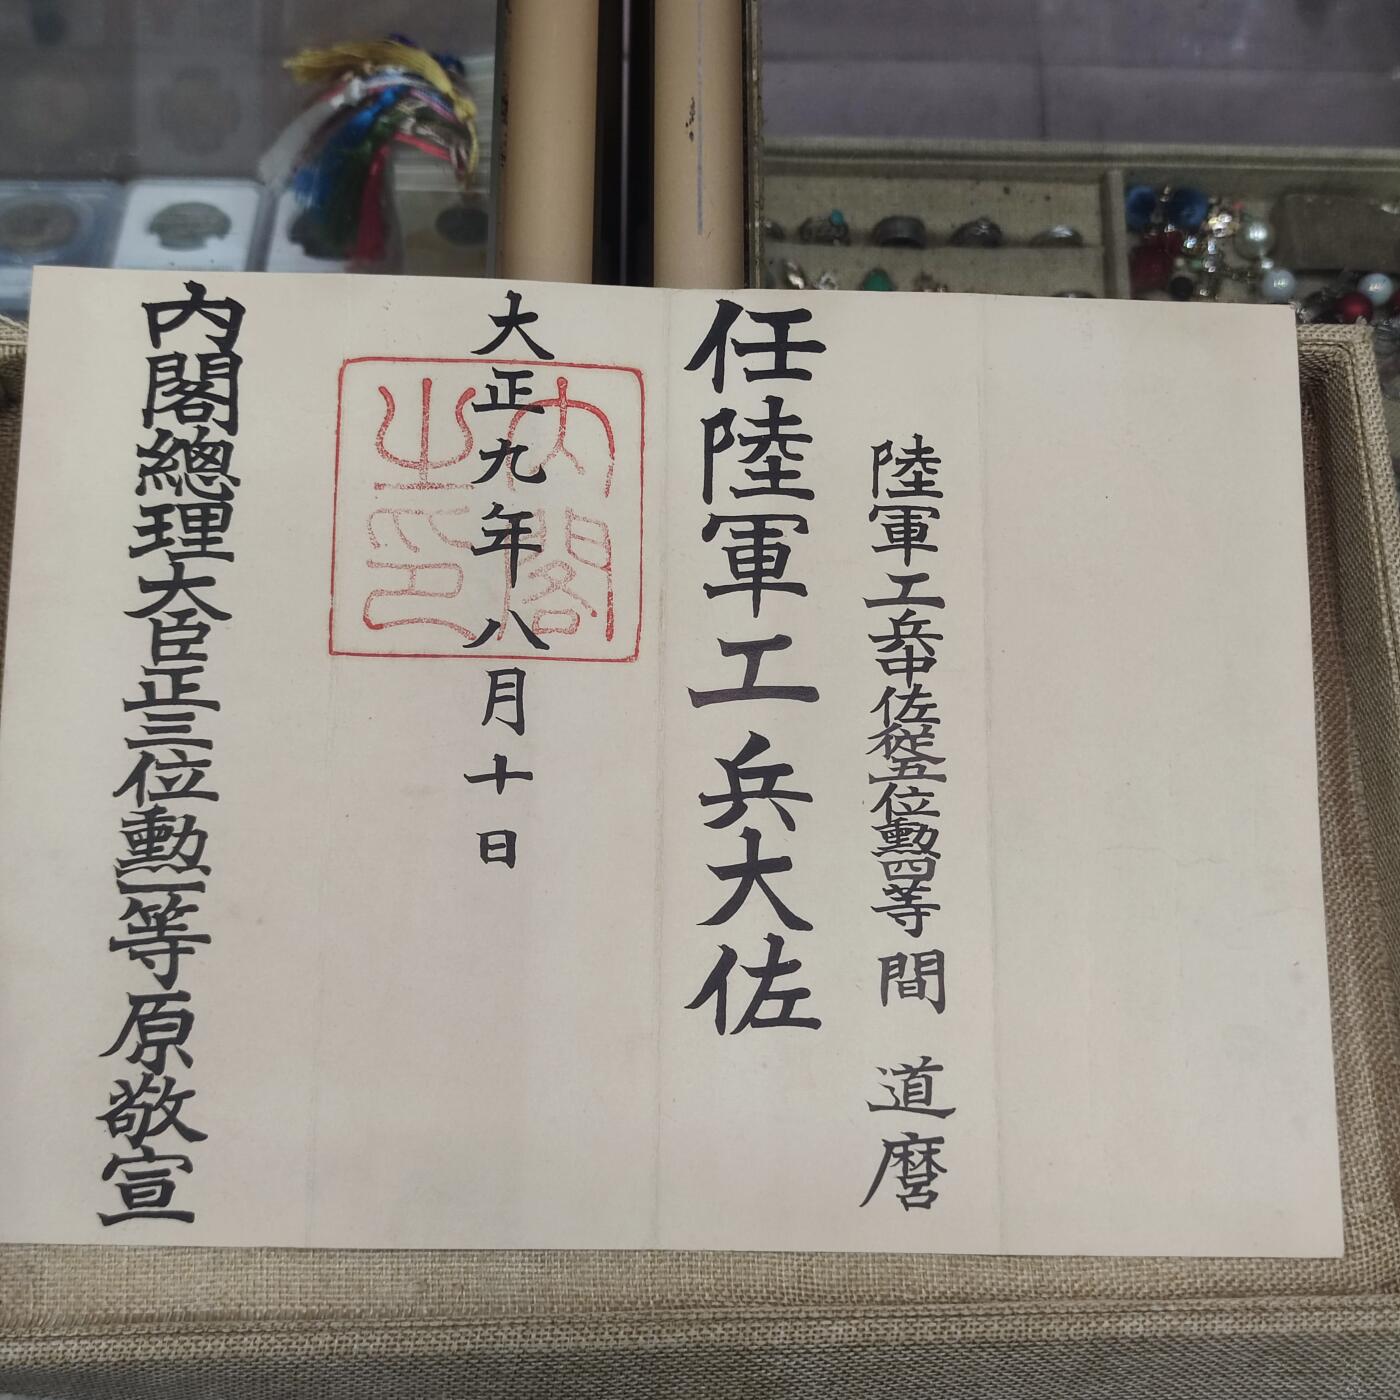 陸軍工兵中佐從五位勲四等間道麿
任陸軍工兵大佐
大正九年八月十日
內閣之印
內閣總理大臣正三位勲一等原敬宣